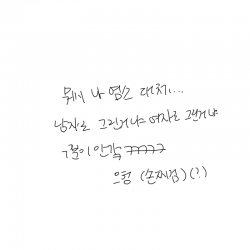 뭐시 나 염소 대처...
남자를 그린거냐 여자를 그린거냐
구분이 안감 ㅋㅋㅋㅋㅋ
으헝 (손째검) (?)